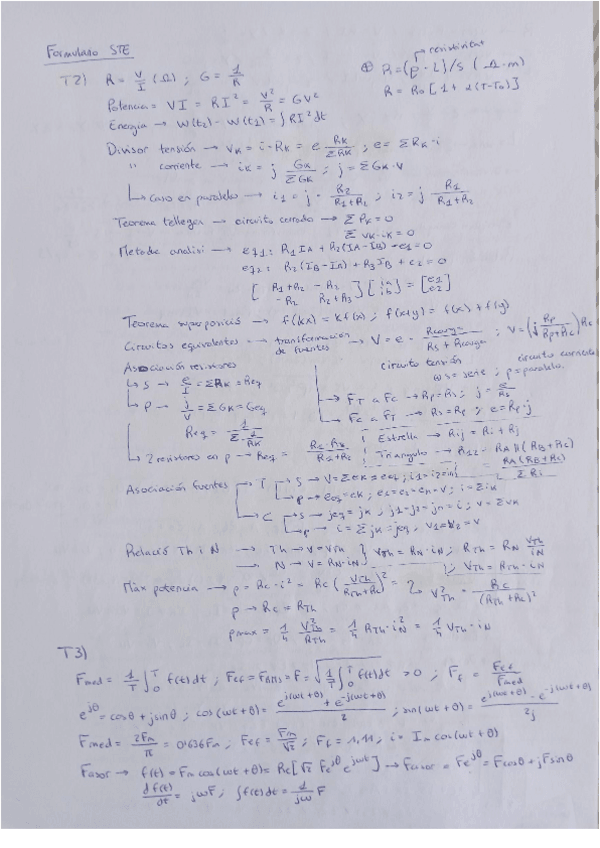 Formulario STE
T2) R = V/I (Ω) ; G = 1/R
⊕ R = (ρ · L)/S (Ω·m)
→ resistividad
R = R0 [1 + α(T-T0)]
Potencia = VI = RI² = V²/R = GV²
Energia → W(t2) - W(t1) = ∫RI² dt
Divisor tensión → vK = i·RK = e RK/ΣRK ; e = ΣRK·i
" corriente → iK = j GK/ΣGK ; j = ΣGK·v
↳ caso en paralelo → i1 = j · R2/(R1+R2) ; i2 = j R1/(R1+R2)
Teorema tellegen → circuito cerrado → ΣPK = 0
ΣvK·iK = 0
Metode analisi → eq1: R1IA + R2(IA-IB) - e1 = 0
eq2: R2(IB-IA) + R3IB + e2 = 0
[R1+R2 -R2
-R2 R2+R3] [ia
ib] = [e1
e2]
Teorema superposició → f(kx) = kf(x) ; f(x+y) = f(x) + f(y)
Circuitos equivalentes → transformación de fuentes → V = e - Rcarga/(Rs+Rcarga) ; V = (j Rp/(Rp+Rc)) Rc
Asociación resistores
circuito tensión
ws = serie ; p = paralelo.
circuito corriente
↳ S → e/I = ΣRK = Req
↳ P → j/V = ΣGK = Geq
→ FT a FC → Rp = Rs ; j = e/Rs
→ FC a FT → Rs = Rp ; e = Rp·j
Req = 1/(Σ 1/RK)
Estrella → Rij = Ri + Rj
↳ 2 resistores en p → Req = RC·RK/(RC+RK)
Triangulo → R12 = RA||(RB+RC) = RA(RB+RC)/ΣRi
Asociación fuentes → T → S → V = ΣeK = eeq ; i1 = i2 = in
→ p → eeq = eK ; e1 = e2 = en = V ; i = ΣiK
→ C → S → jeq = jK ; j1 = j2 = jn = i ; v = ΣvK
→ p → i = ΣjK = jeq ; v1 = v2 = v
Relació Th i N → Th → v = vTh
→ N → v = RN·iN
} vTh = RN·iN ; RTh = RN vTh/iN
↳ VTh = RTh·iN
Màx potencia → p = Rc·i² = Rc (VTh/(RTh+Rc))² = V²Th · Rc/(RTh+Rc)²
p → Rc = RTh
pmax = 1/4 V²Th/RTh = 1/4 RTh·i²N = 1/4 VTh·iN
T3)
Fmed = 1/T ∫0T f(t)dt ; Fef = FRMS = F = √(1/T ∫0T f(t)dt) > 0 ; Ff = Fef/Fmed
e^jθ = cosθ + jsinθ ; cos(ωt+θ) = (e^j(ωt+θ) + e^-j(ωt+θ))/2 ; sin(ωt+θ) = (e^j(ωt+θ) - e^-j(ωt+θ))/2j
Fmed = 2Fm/π = 0'636Fm ; Fef = Fm/√2 ; Ff = 1,11 ; i = Im cos(ωt+θ)
Fasor → f(t) = Fm cos(ωt+θ) = Re[√2 Fe^jθ e^jωt] → Ffasor = Fe^jθ = Fcosθ + jFsinθ
df(t)/dt = jωF ; ∫f(t)dt = 1/jω F